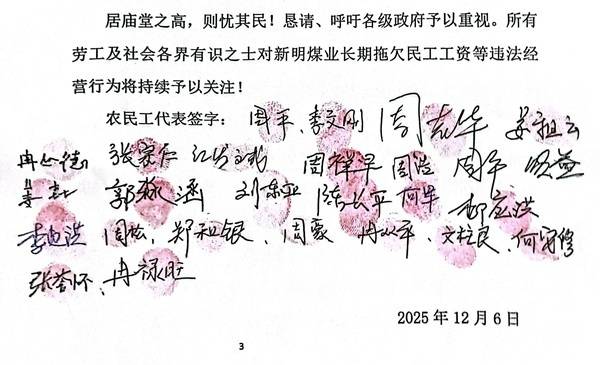 居庙堂之高，则忧其民！恳请、呼吁各级政府予以重视。所有
劳工及社会各界有识之士对新明煤业长期拖欠民工工资等违法经
营行为将持续予以关注！
农民工代表签字：周平、李文刚 周志华 姜祖云
张宗仁 周祥平 周浩 周军
郭淼涵 刘东亚 陈长平 何华 郁应洪
周松、郑和银、周蒙 冉从平、文柱民、何守修
张誉怀、冉禄旺
2025年12月6日
3